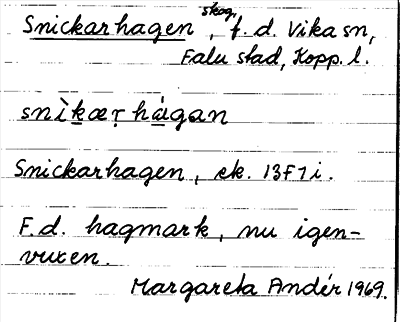 Snickarhagen, skog, f.d. Vika sn,
Falu stad, Kopp. l.
snìkæṛhágan
Snickarhagen, ek. 13F7i.
F.d. hagmark, nu igen-
vuxen.
Margareta Andér 1969.